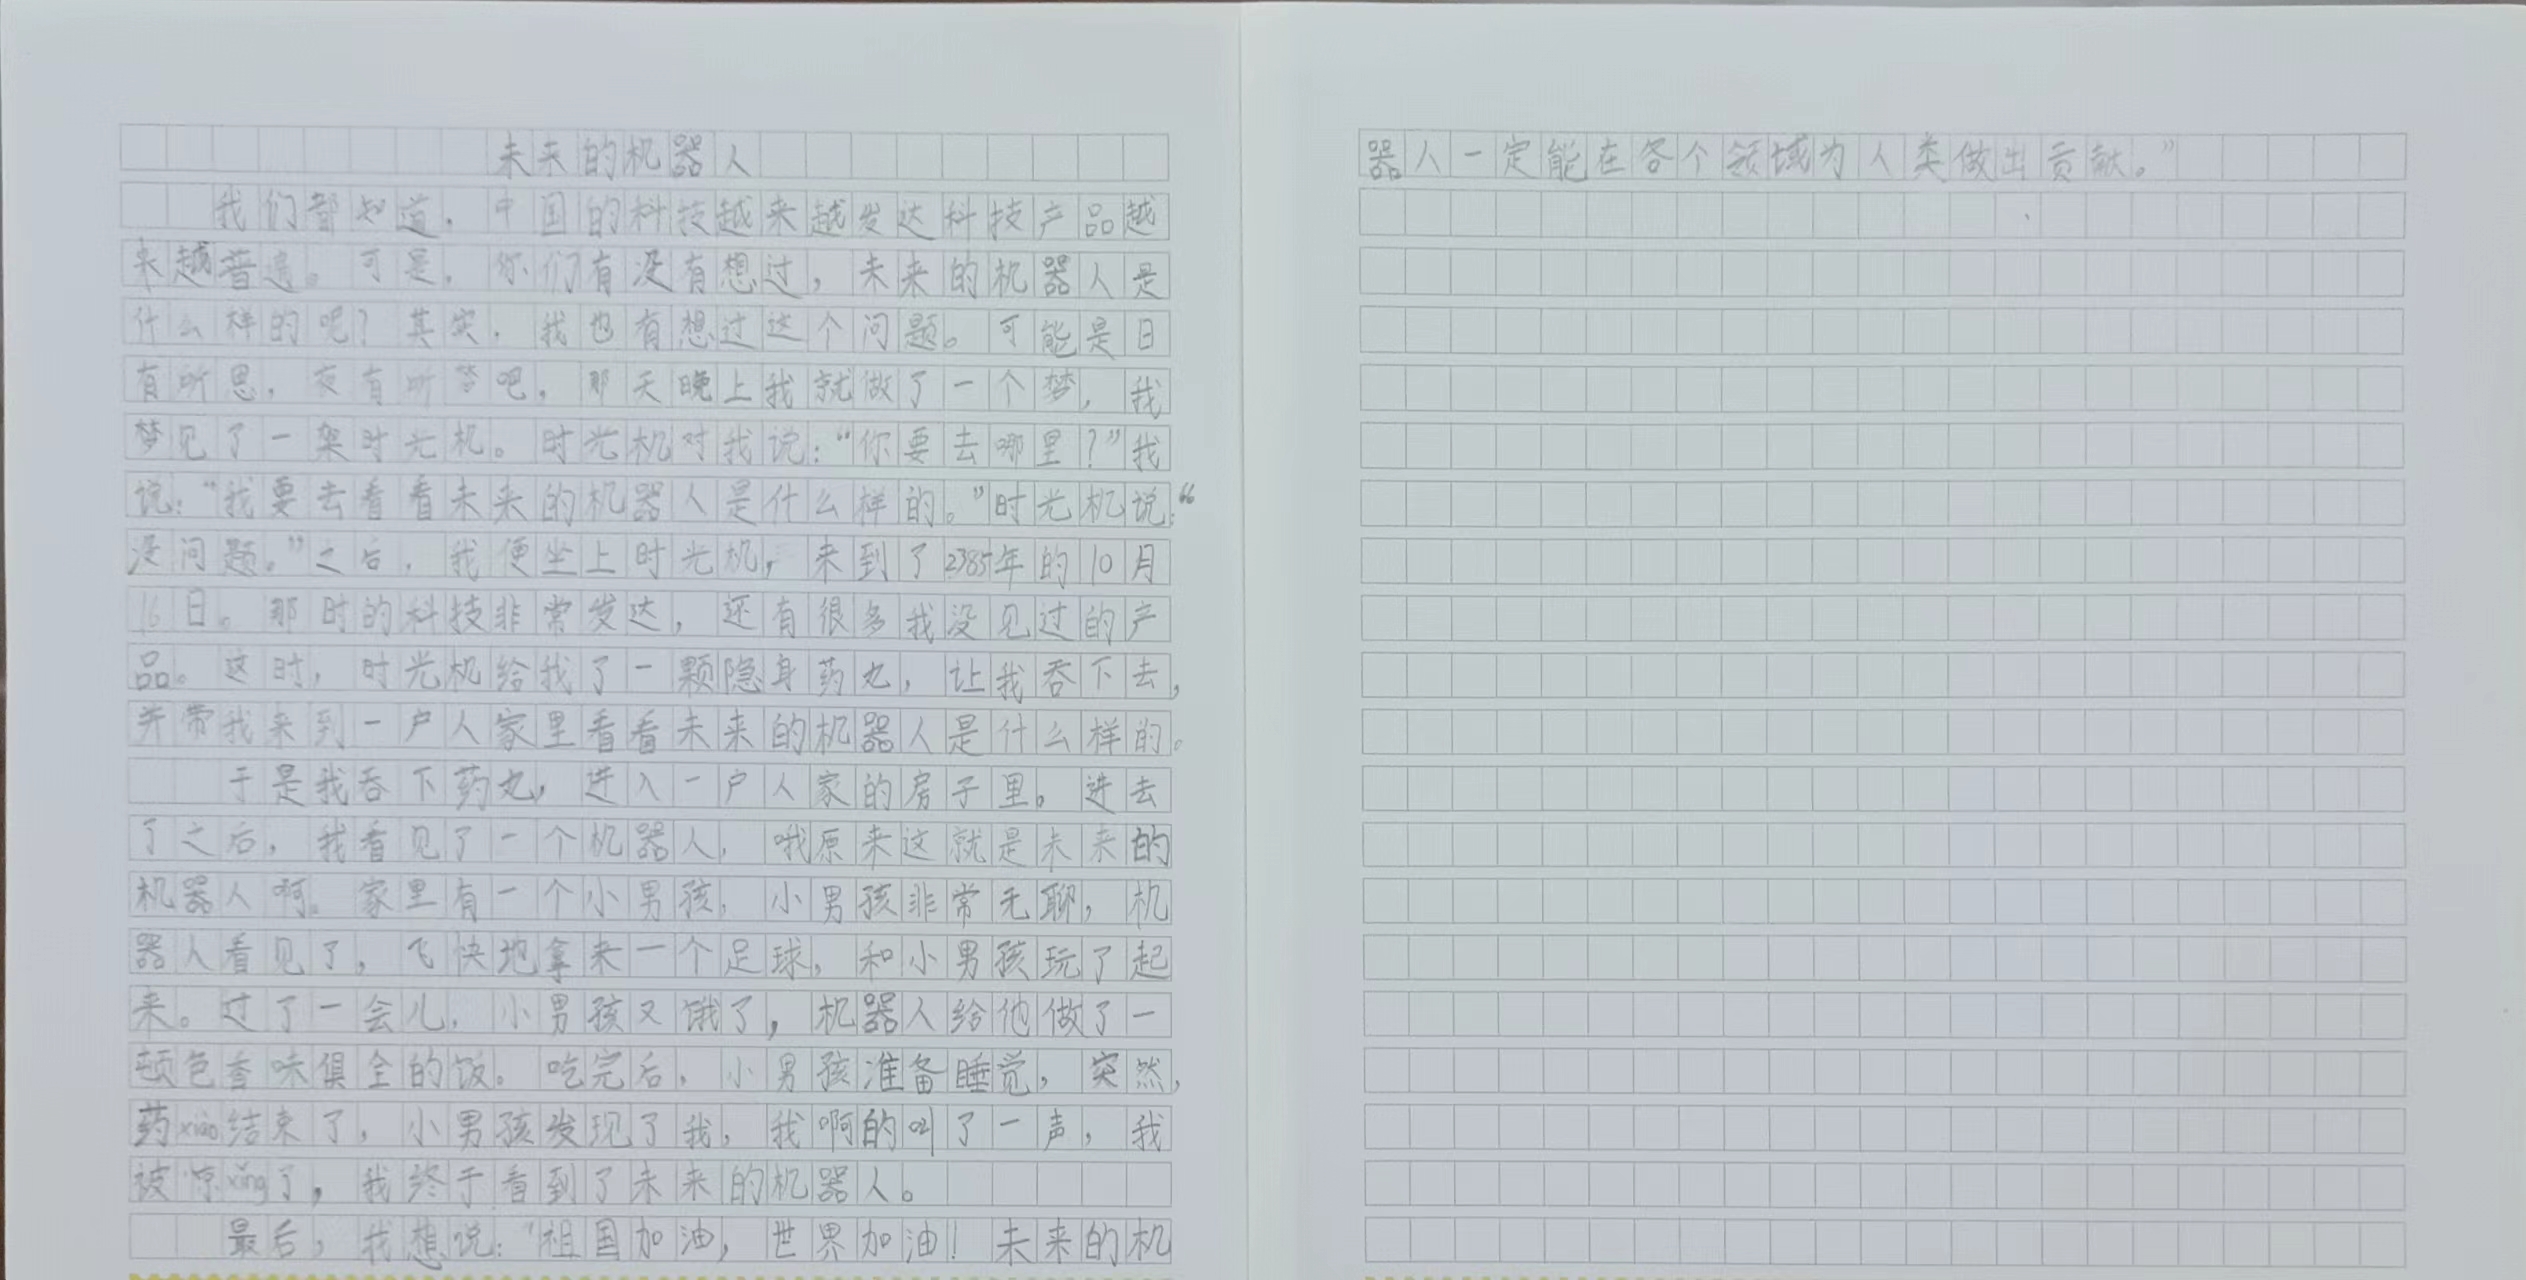 未来的机器人
我们都知道，中国的科技越来越发达科技产品越
来越普遍。可是，你们有没有想过，未来的机器人是
什么样的呢？其实，我也有想过这个问题。可能是日
有所思，夜有所梦吧，那天晚上我就做了一个梦，我
梦见了一架时光机。时光机对我说：“你要去哪里？”我
说：“我要去看看未来的机器人是什么样的。”时光机说：“
没问题。”之后，我便坐上时光机，来到了2385年的10月
16日。那时的科技非常发达，还有很多我没见过的产
品。这时，时光机给我了一颗隐身药丸，让我吞下去，
并带我来到一户人家里看看未来的机器人是什么样的。
于是我吞下药丸，进入一户人家的房子里。进去
了之后，我看见了一个机器人，哦原来这就是未来的
机器人啊。家里有一个小男孩，小男孩非常无聊，机
器人看见了，飞快地拿来一个足球，和小男孩玩了起
来。过了一会儿，小男孩又饿了，机器人给他做了一
顿色香味俱全的饭。吃完后，小男孩准备睡觉，突然，
药xiào结束了，小男孩发现了我，我啊的叫了一声，我
被惊xǐng了，我终于看到了未来的机器人。
最后，我想说：“祖国加油，世界加油！未来的机
器人一定能在各个领域为人类做出贡献。”